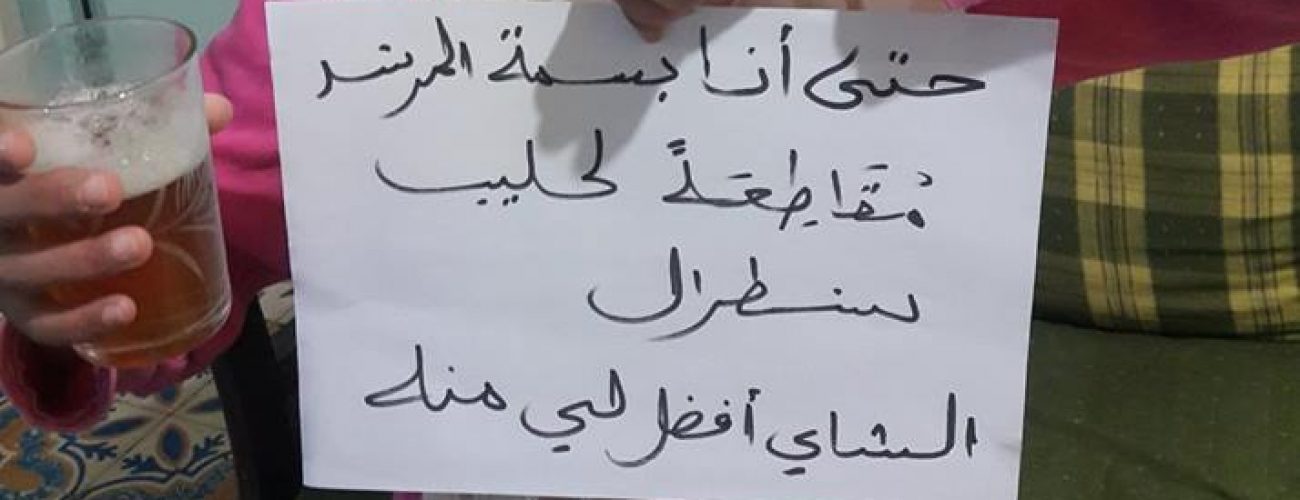 حتى أنا بسمة المرشد
مُقَاطِعَةٌ لحليب
سنطرال
الشاي أفضل لي منه